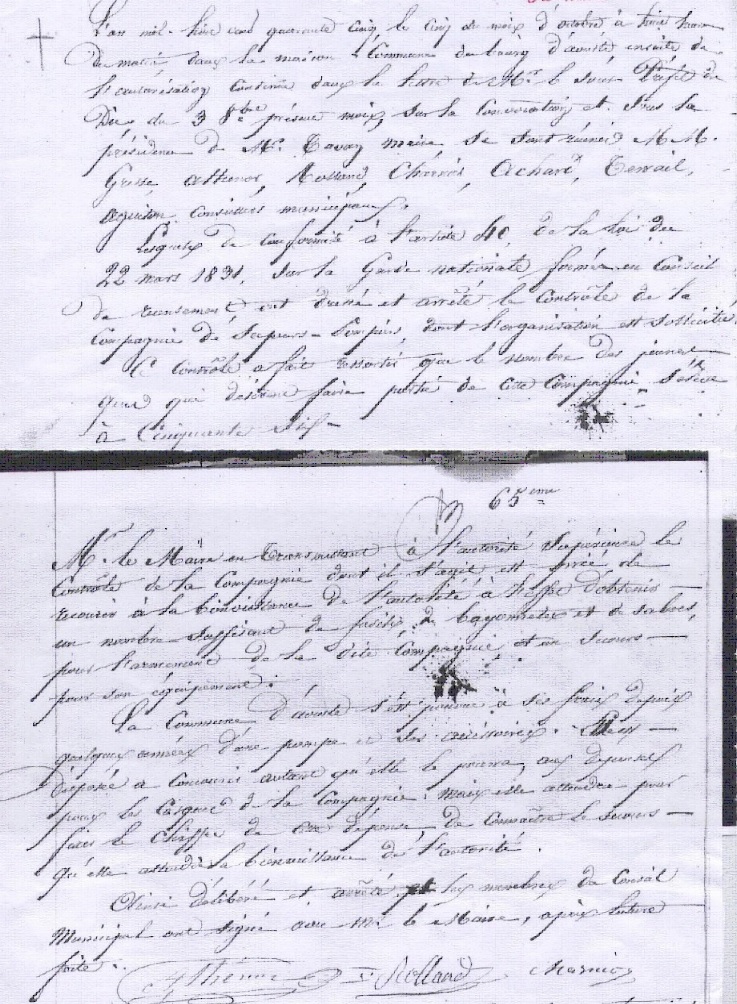 L'an mil-huit cent quarante cinq le cinq du mois d'octobre à huit heures
du matin dans la maison Commune du bourg d'aouste ensuite de
l'autorisation Contenue dans la lettre de Mr. le Sous Préfet de
Die du 3 8bre présent mois, sur la Convocation et sous la
présidence de Mr. Tavan maire se sont réunis MM.
Gresse, athenor, Rolland, Charras, Achard, Terrail,
conseillers municipaux.
Lesquels de Conformité à l'article de la loi du
22 mars 1831, sur la Garde nationale formés en Conseil
de recensement ont dressé et arrêté le Contrôle de la
Compagnie de Sapeurs-Pompiers, dont l'organisation est sollicitée.
Ce Contrôle a fait ressortir que le nombre des jeunes
gens qui désirent faire partie de cette Compagnie s'élève
à Cinquante Sept
65eme
Mr. le Maire en transmettant à l'autorité supérieure le
Contrôle de la Compagnie dont il s'agit est forcé de
recourir à la bienveillance de l'autorité à l'effet d'obtenir
un nombre suffisant de fusils, de bayonnettes et de sabres,
pour l'armement de la dite Compagnie et un secours
pour son équipement.
La Commune d'aouste s'est pourvue à ses frais depuis
quelques années d'une pompe et ses accessoires. Elle est
disposée a concourir autant qu'elle le pourra, aux dépenses
pour les Casques de la Compagnie, mais elle attendra pour
fixer le Chiffre de cette dépense, de Connaître le secours
qu'elle attend de la bienveillance de l'autorité.
Ainsi délibéré et arrêté et les membres du Conseil
Municipal ont signé avec Mr le Maire, après lecture
faite.
Athenor Rolland